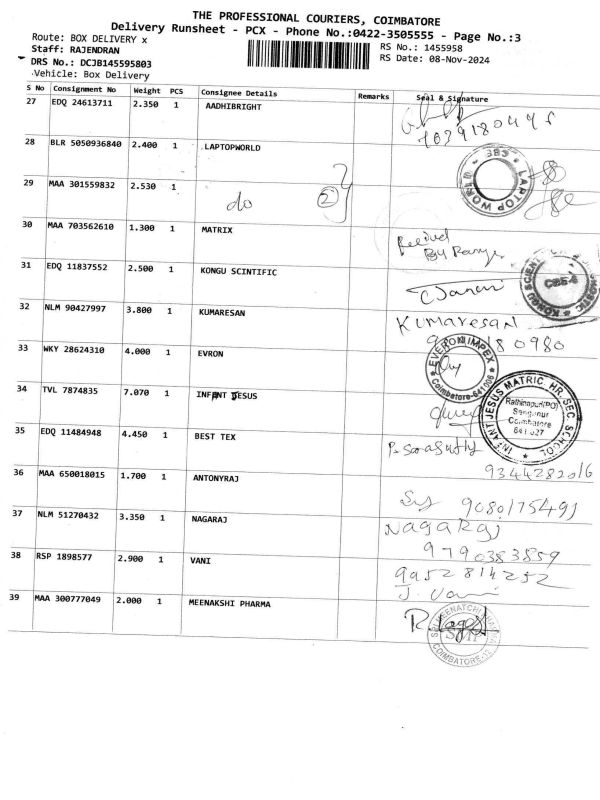 THE PROFESSIONAL COURIERS, COIMBATORE
Delivery Runsheet - PCX - Phone No.:0422-3505555 - Page No.:3
Route: BOX DELIVERY x
RS No.: 1455958
Staff: RAJENDRAN
RS Date: 08-Nov-2024
DRS No.: DCJB145595803
Vehicle: Box Delivery
S No Consignment No Weight PCS Consignee Details Remarks Seal & Signature
27 EDQ 24613711 2.350 1 AADHIBRIGHT
28 BLR 5050936840 2.400 1 LAPTOPWORLD
383 LAPTOP WORLD
29 MAA 301559832 2.530 1 do 2
30 MAA 703562610 1.300 1 MATRIX
31 EDQ 11837552 2.500 1 KONGU SCINTIFIC
KONGU SCIEN
CBE-4
32 NLM 90427997 3.800 1 KUMARESAN Kumaresan
180980
33 WKY 28624310 4.000 1 EVRON
EVERON IMPEX
Coimbatore-641006
34 TVL 7874835 7.070 1 INFANT JESUS
INFANT JESUS MATRIC. HR. SEC SCHOOL
Rathinapuri(PO)
Sanganur
Coimbatore
641 027
35 EDQ 11484948 4.450 1 BEST TEX
9344282016
36 MAA 650018015 1.700 1 ANTONYRAJ
37 NLM 51270432 3.350 1 NAGARAJ Nagaraj
9790383859
38 RSP 1898577 2.900 1 VANI 9952814252
J. Vani
39 MAA 300777049 2.000 1 MEENAKSHI PHARMA
COIMBATORE-12